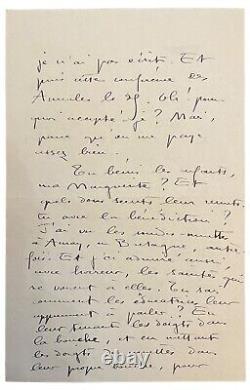 je n'ai pas écrit. Et
puis cette conférence des
Annales le 29. Oh! pour
quoi accepté-je? Mais,
parce qu'on me paye
assez bien.
Tu bénis les enfants,
ma Marguerite? Et
quels dons leur
tu avec la bénédiction?
J'ai vu les sourdes-muettes
à Auray, en Bretagne, autre
fois. Et j'ai admiré aussi,
avec horreur, les saintes qui
se vouent à elles. Tu sais
comment les éducatrices leur
apprennent à parler? En
leur tenant les doigts dans
la bouche, et en mettant
les doigts des dans
leur propre bouche, pour